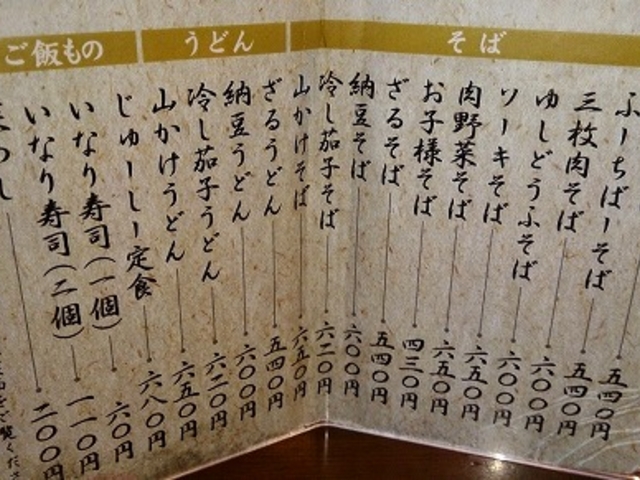 そば
五四〇円
ふーちばーそば 五四〇円
三枚肉そば 六〇〇円
ゆしどうふそば 六〇〇円
ソーキそば 六五〇円
肉野菜そば 六五〇円
お子様そば 四三〇円
ざるそば 五四〇円
納豆そば 六〇〇円
冷し茄子そば 六二〇円
山かけそば 六五〇円
うどん
ざるうどん 五四〇円
納豆うどん 六〇〇円
冷し茄子うどん 六二〇円
山かけうどん 六五〇円
ご飯もの
じゅーしー定食 六八〇円
いなり寿司(一個) 六〇円
いなり寿司(二個) 一一〇円
二〇〇円
ご覧くださ